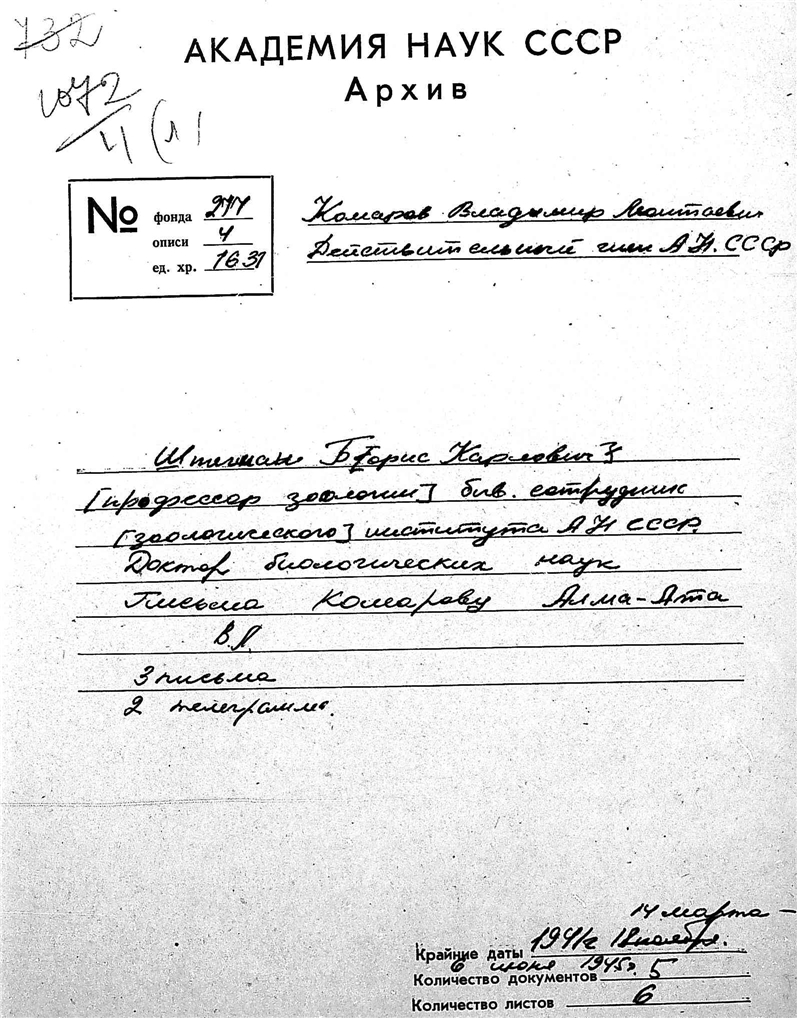 732
1072
4 (л)
АКАДЕМИЯ НАУК СССР
Архив
№ фонда 277
описи 4
ед. хр. 1631
Комаров Владимир Леонтьевич
Действительный член АН. СССР
Штегман Б[орис Карлович]
[профессор зоологии] быв. сотрудник
[зоологического] института АН СССР.
Доктор биологических наук
Письма Комарову Алма-Ата
В.Л.
3 письма
2 телеграммы.
14 марта –
Крайние даты 1941г 18 ноября.
6 июня 1945г.
Количество документов 5
Количество листов 6